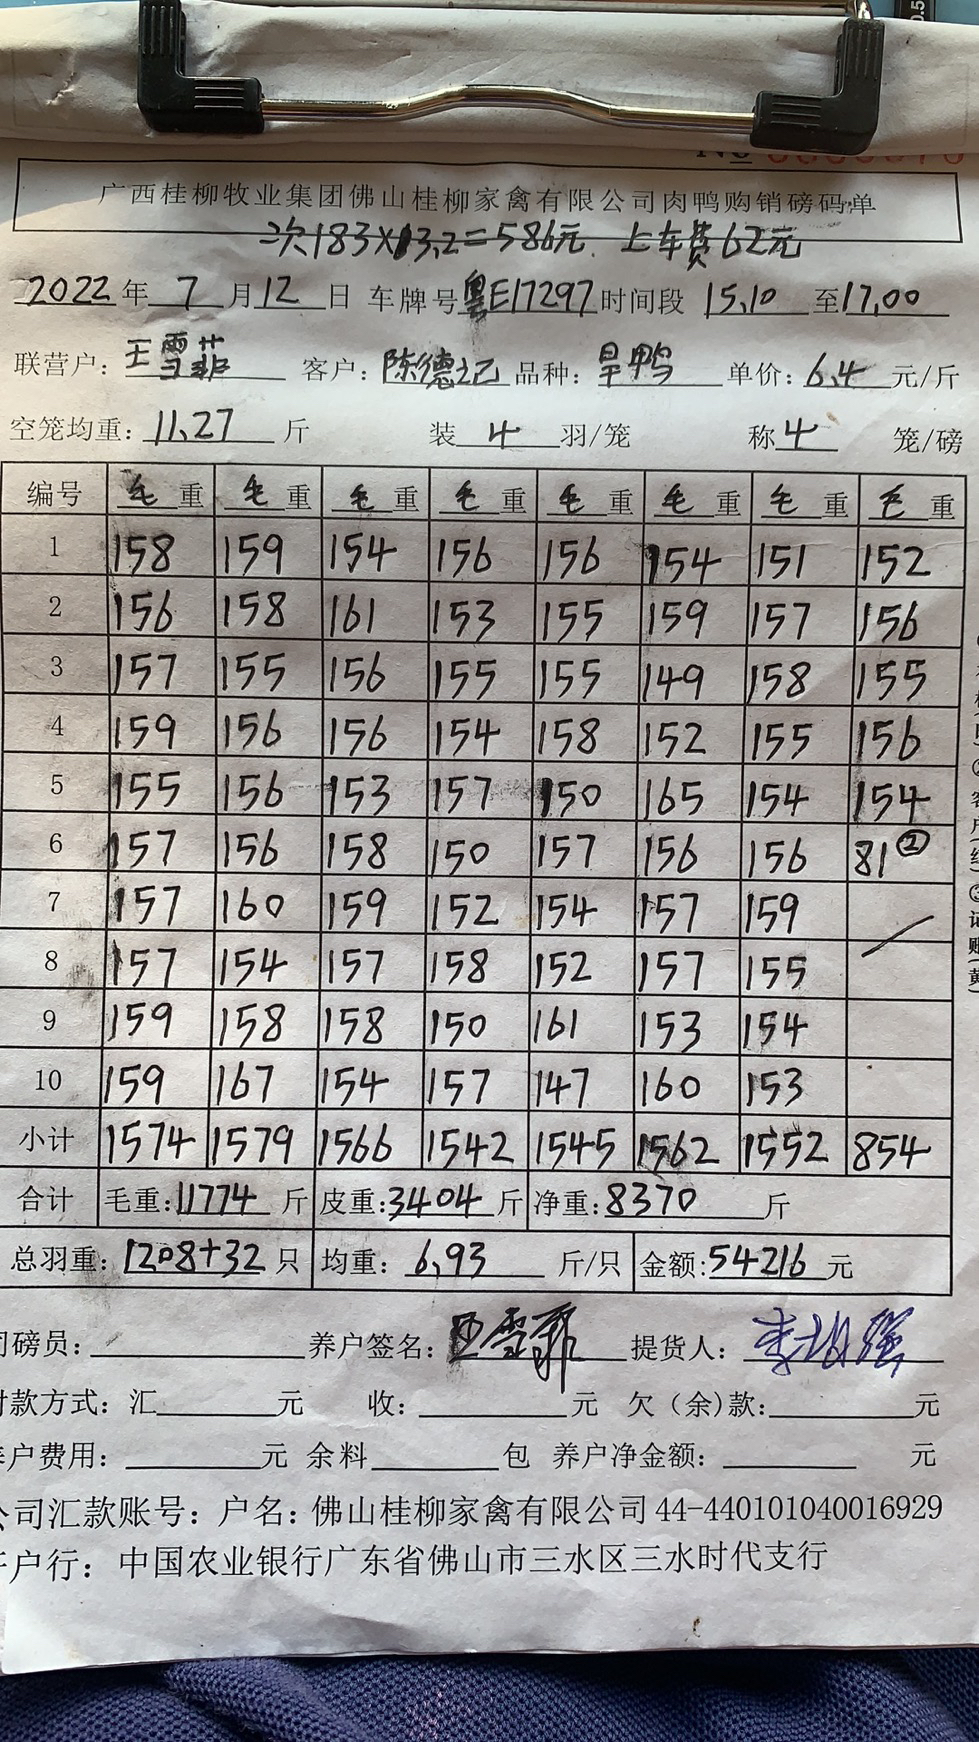 广西桂柳牧业集团佛山桂柳家禽有限公司肉鸭购销磅码单
次183×3.2=586元. 上车费62元
2022年7月12日 车牌号粤E17297时间段 15.10 至17.00
联营户:王雪菲 客户:陈德记 品种:旱鸭 单价:6.4元/斤
空笼均重:11.27斤 装4羽/笼 称4笼/磅
编号 毛重 毛重 毛重 毛重 毛重 毛重 毛重 毛重
1 158 159 154 156 156 154 151 152
2 156 158 161 153 155 159 157 156
3 157 155 156 155 155 149 158 155
4 159 156 156 154 158 152 155 156
5 155 156 153 157 150 165 154 154
6 157 156 158 150 157 156 156 81②
7 157 160 159 152 154 157 159
8 157 154 157 158 152 157 155
9 159 158 158 150 161 153 154
10 159 167 154 157 147 160 153
小计 1574 1579 1566 1542 1545 1562 1552 854
合计 毛重:11774斤 皮重:3404斤 净重:8370斤
总羽重:1208+32只 均重:6.93斤/只 金额:54216元
磅员: 养户签名:王雪菲 提货人:
付款方式:汇 元 收: 元 欠(余)款: 元
养户费用: 元 余料 包 养户净金额: 元
公司汇款账号:户名:佛山桂柳家禽有限公司 44-440101040016929
开户行:中国农业银行广东省佛山市三水区三水时代支行